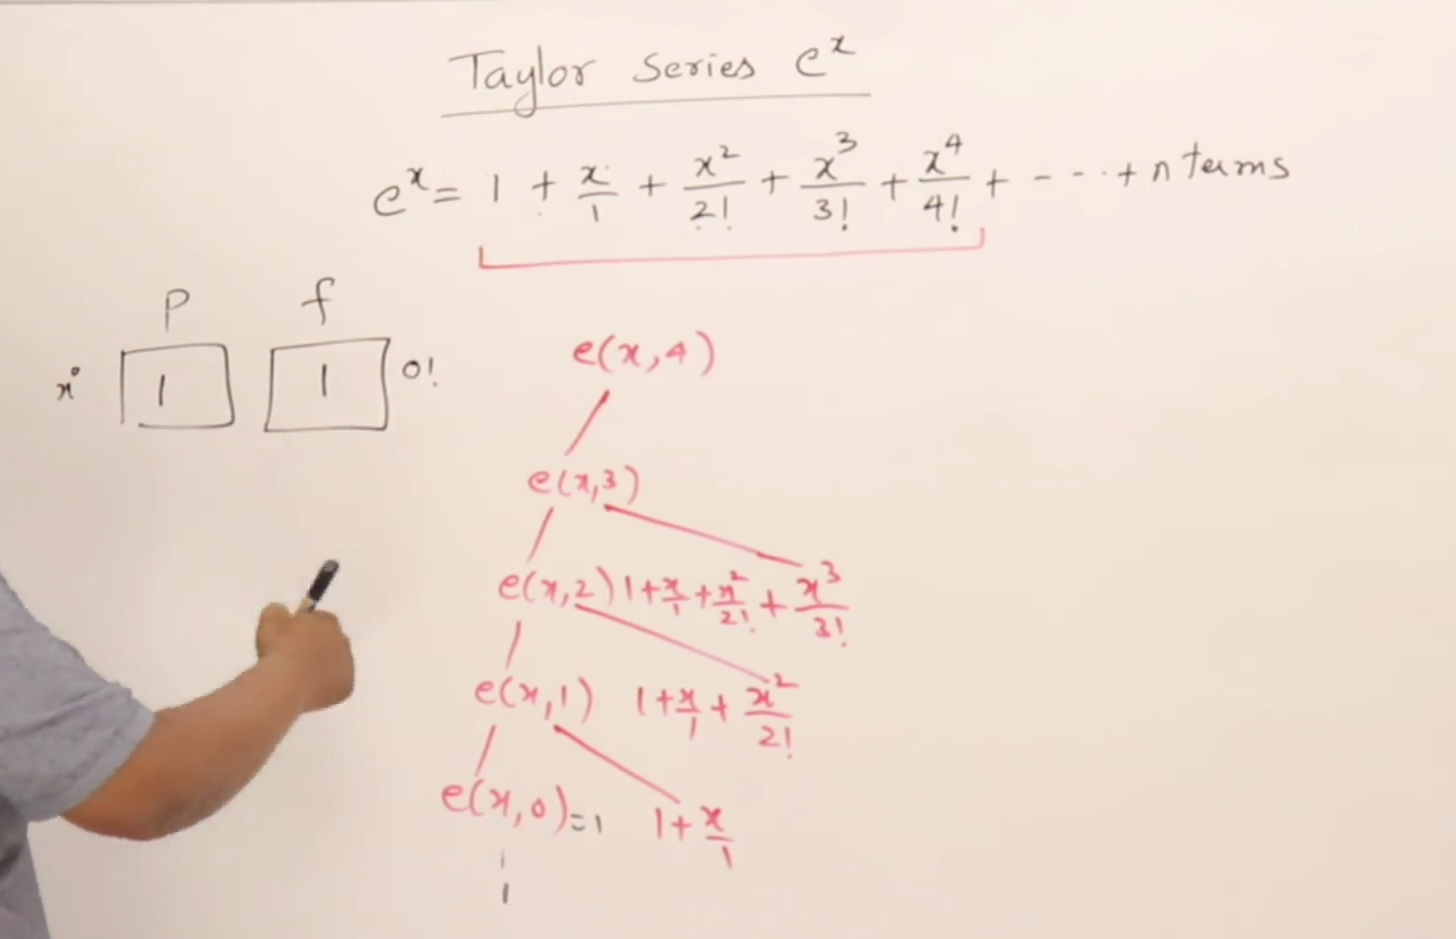 Taylor Series eˣ
eˣ = 1 + x/1 + x²/2! + x³/3! + x⁴/4! + - - - + n terms
P f
x⁰ 1 1 0!
e(x,4)
e(x,3)
e(x,2) 1+x/1+x²/2!+x³/3!
e(x,1) 1+x/1+x²/2!
e(x,0)=1 1+x/1
1